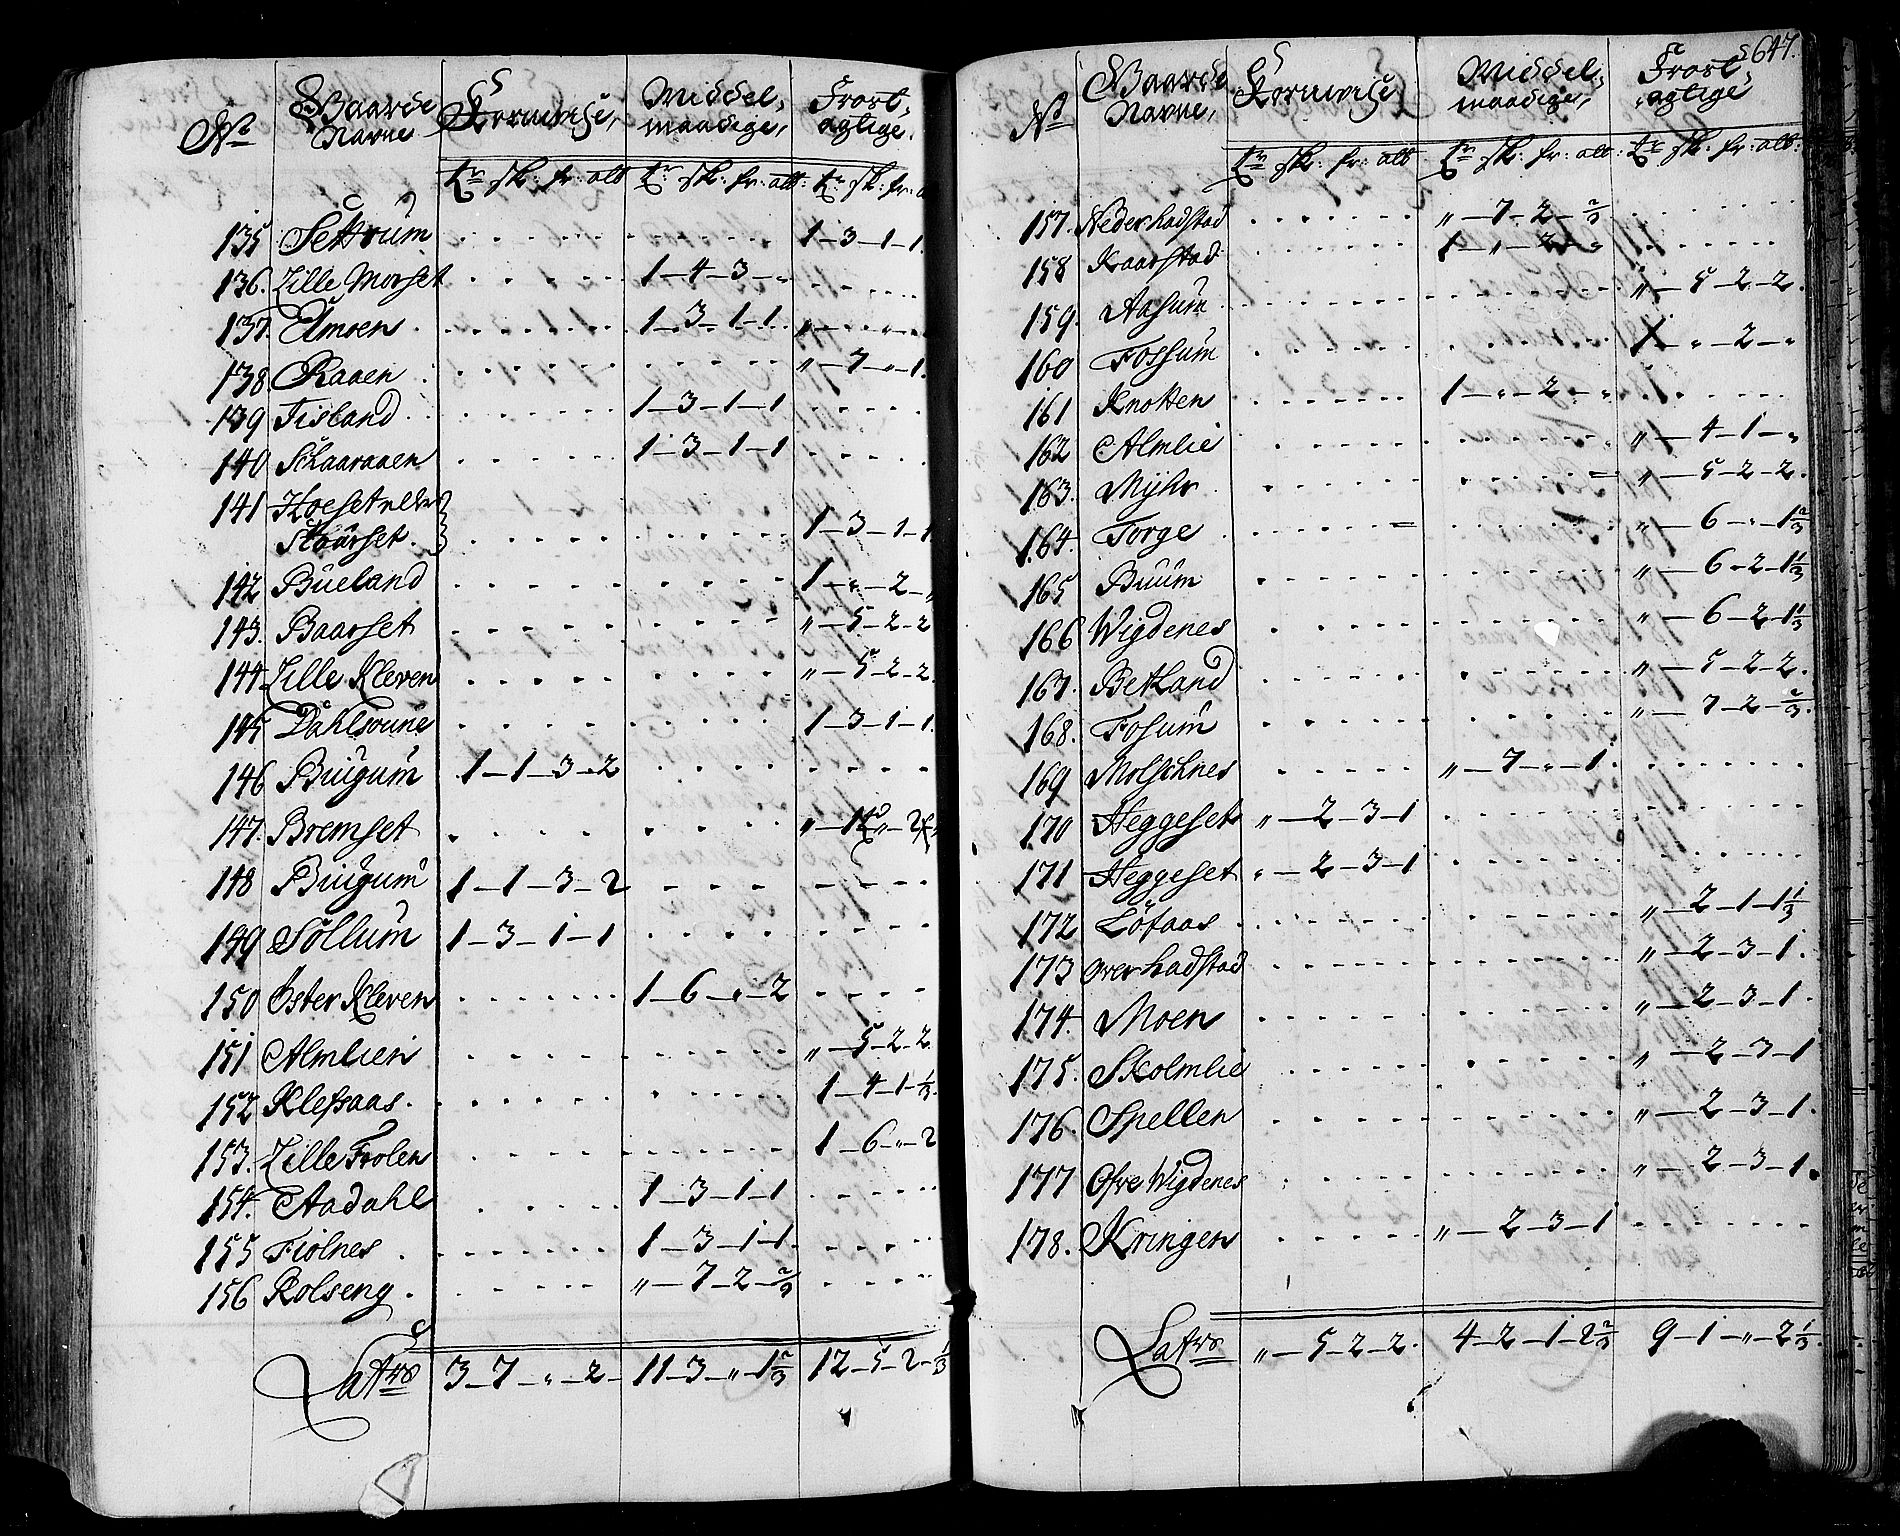 No Gaarde Navne Kornvise, Middelmaadige, Frostagtige.
tr sk: fr: alb tr sk: fr: alb: tr sk: fr:
135 Settrum 1-3-1-1
136. Lille Morset 1-4-3-"
137. Elmoen 1-3-1-1
138. Raaen "-7-"-1.
139 Fisland 1-3-1-1
140 Schaaraaen 1-3-1-1
141 Hoeset
Staurset 1-3-1-1
142 Bueland 1-"-2-"
143. Baarset "-5-2-2
144 Lille Kleven "-5-2-2
145 Dahlsrune 1-3-1-1
146 Buugum 1-1-3-2
147. Bremset
148 Buugum 1-1-3-2
149 Söllum 1-3-1-1
150 Öster Kleven 1-6-"-2
151 Almlien "-5-2-2
152 Klefsaas. 1-4-1-1/3
153. Lille Frolen 1-6-"-2
154. Aadahl 1-3-1-1
155 Fiolnes 1-3-1-1
156 Rolseng "-7-2-2/3
Latus 3-7-"-2 11-3-"-1 2/3 12-5-2-1/3
647.
No Gaarde Navne, Kornvise Middelmaadige, Frostagtige
tr sk: fr: alb tr sk: fr: alb: tr sk: fr: alb:
157. Nederhadstad "-7-2-2/3
158 Kaarstad 1-"-2-"
159. Aasum "-5-2-2.
160 Fossum 1-"-2-"
161 Knotten 1-"-2-"
162 Almlie "-4-1-"
163. Myhr "-5-2-2.
164. Torge "-6-"-1 2/3
165 Buum "-6-2-1 1/3
166 Wigdenes "-6-2-1 1/3
167. Betland "-5-2-2.
168. Fosum "-7-2-2/3.
169 Molschnes "-7-"-1.
170 Heggeset "-2-3-1
171 Heggeset "-2-3-1
172 Löfaas "-2-1-1 1/3
173 Overhadstad "-2-3-1.
174. Moen "-2-3-1.
175. Skolmlie "-2-3-1
176. Spellen "-2-3-1.
177 Ofre Wigdenes "-2-3-1.
178. Kringen "-2-3-1
Latus "-5-2-2. 4-2-1-2 2/3 9-1-"-2 1/3.